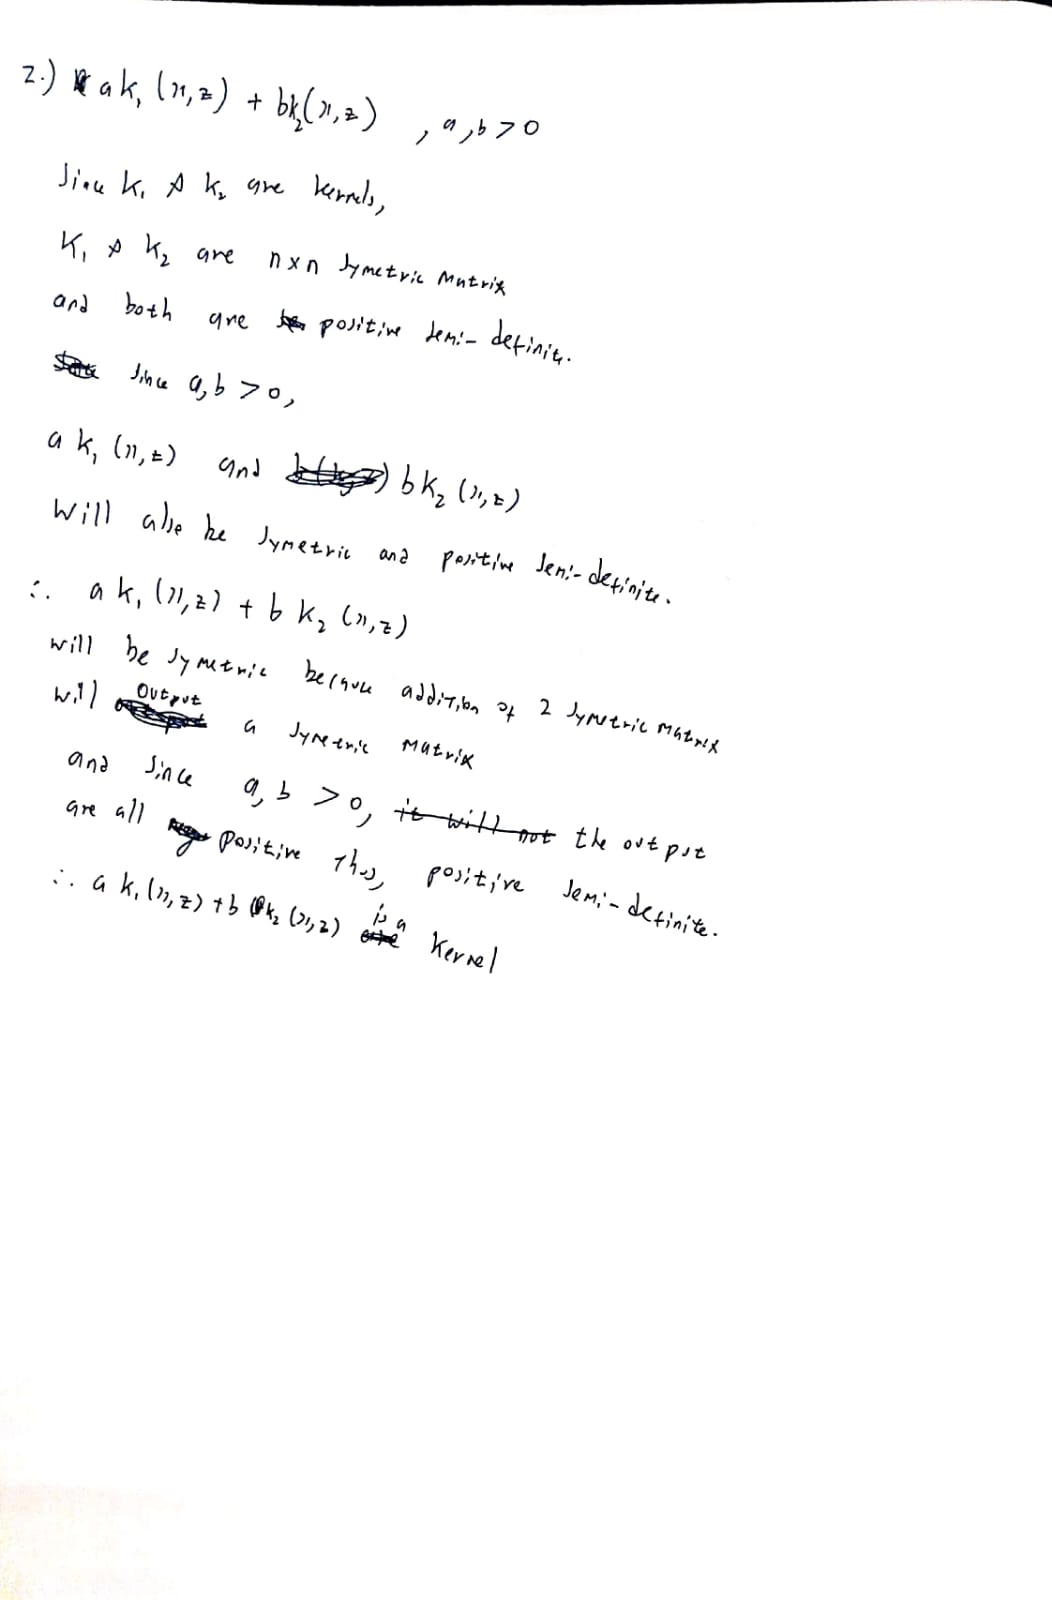 2.) a k₁ (x,z) + bk₂(x,z) , a,b > 0
Since k₁ & k₂ are kernels,
K₁ & K₂ are n x n symetric Matrix
and both are positive semi-definite.
since a,b > 0,
a k₁ (x,z) and b k₂ (x,z)
Will also be symetric and positive semi-definite.
∴ a k₁ (x,z) + b k₂ (x,z)
will be symetric because addition of 2 symetric matrix
will output a symetric matrix
and since a, b > 0, it will not the output
are all positive Thus, positive semi-definite.
∴ a k₁(x,z) + b k₂ (x,z) is a kernel